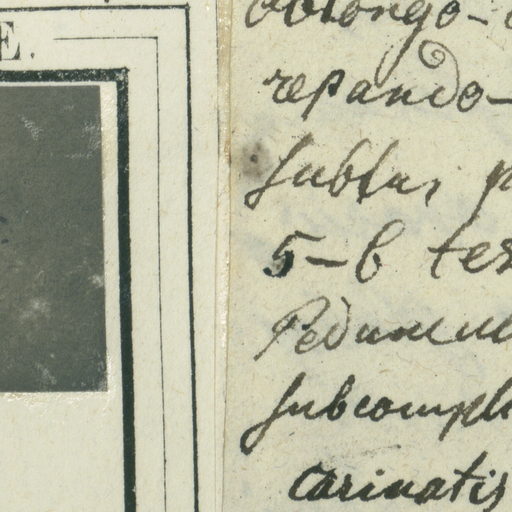 E.
oblongo-
repando-
subtus p
5-6 ter
Peduncul
subcompl
carinatis